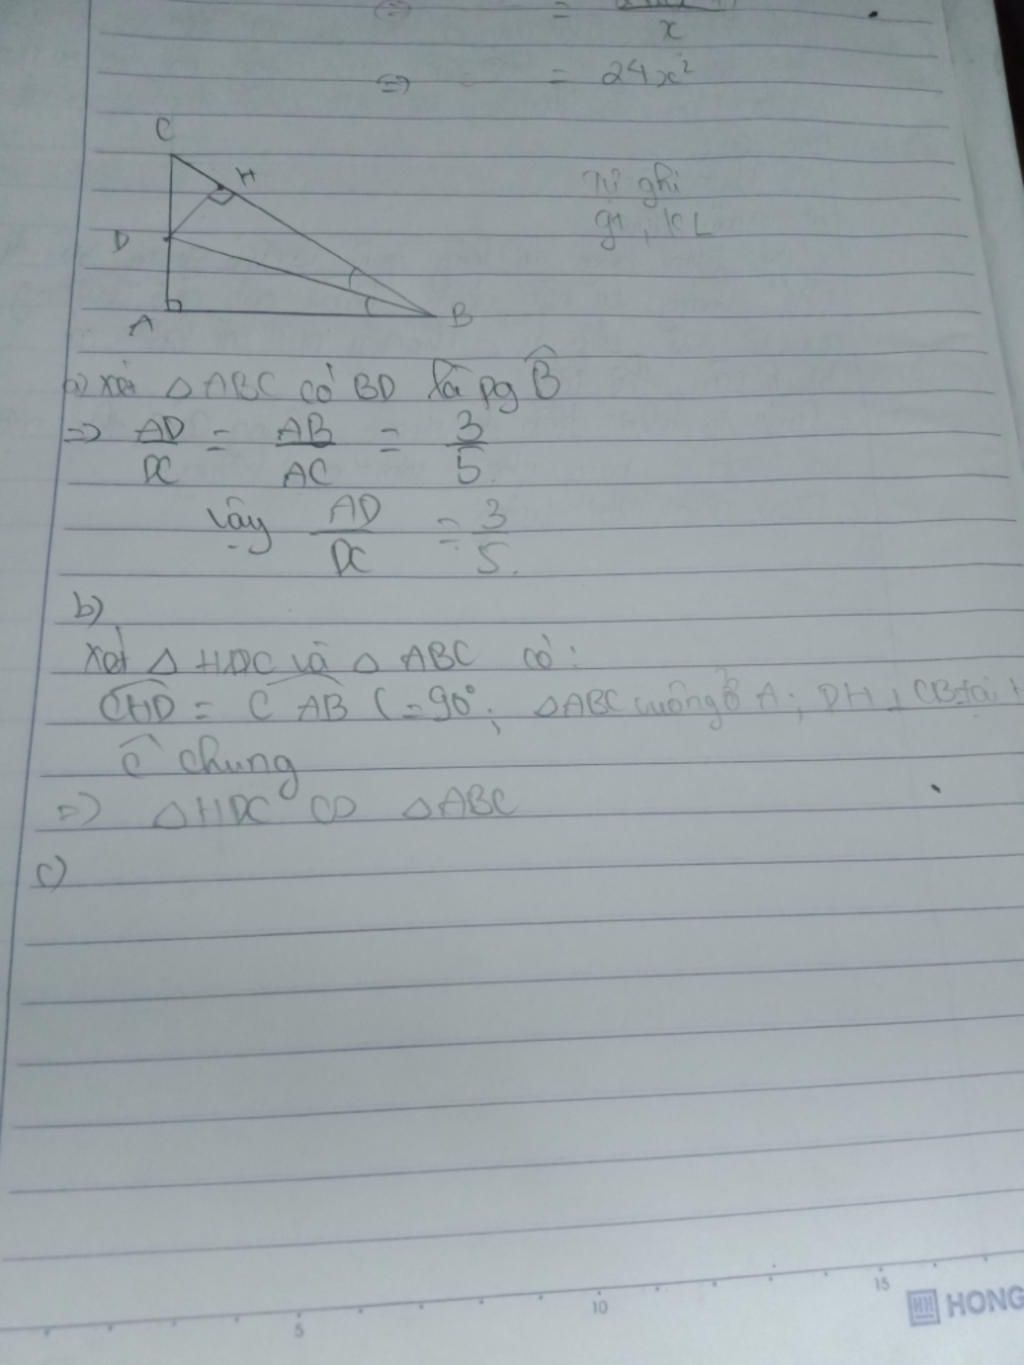 x
⇒ = 24x²
C
H
D
A
B
Tự ghi
gt, KL
a) Xét △ ABC có BD là pg B̂
=> AD/DC = AB/AC = 3/5.
Vậy AD/DC = 3/5.
b)
Xét △ HDC và △ ABC có:
CHD = CAB (=90°; △ABC vuông ở A; DH ⊥ CB tại H
Ĉ chung
=> △HDC ∽ △ABC
c)
5
10
15
HH HONG